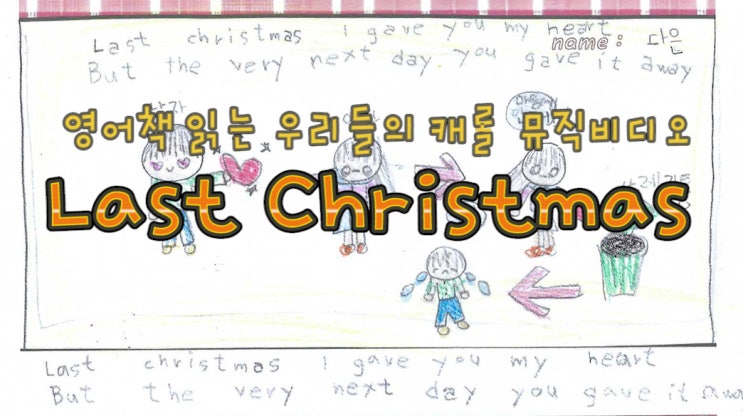 Last christmas I gave you my heart
name: 다은
But the very next day you gave it away
영어책 읽는 우리들의 캐롤 뮤직비디오
Last Christmas
Last christmas I gave you my heart
But the very next day you gave it away